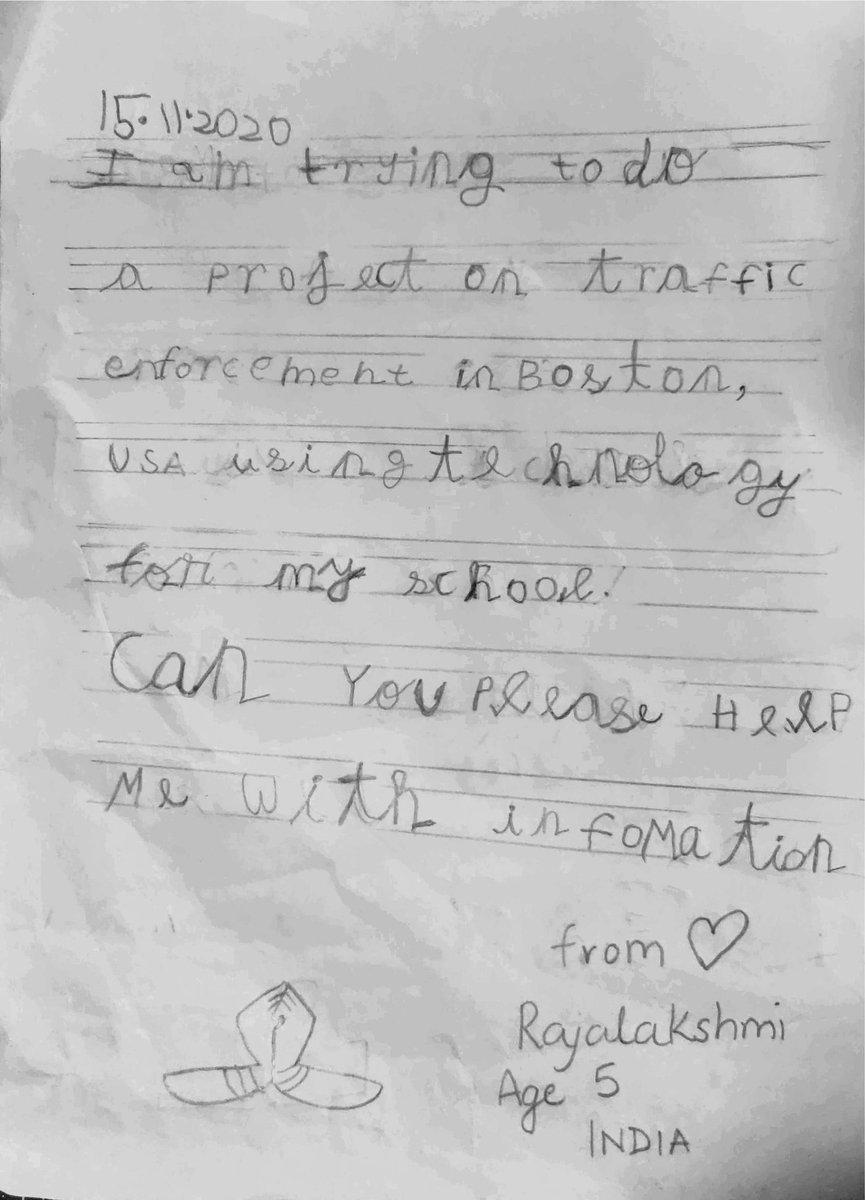 15.11.2020
I am trying to do
a project on traffic
enforcement in Boston,
USA using technology
for my school.
Can you please Help
Me with infomation
from ♡
Rajalakshmi
Age 5
INDIA